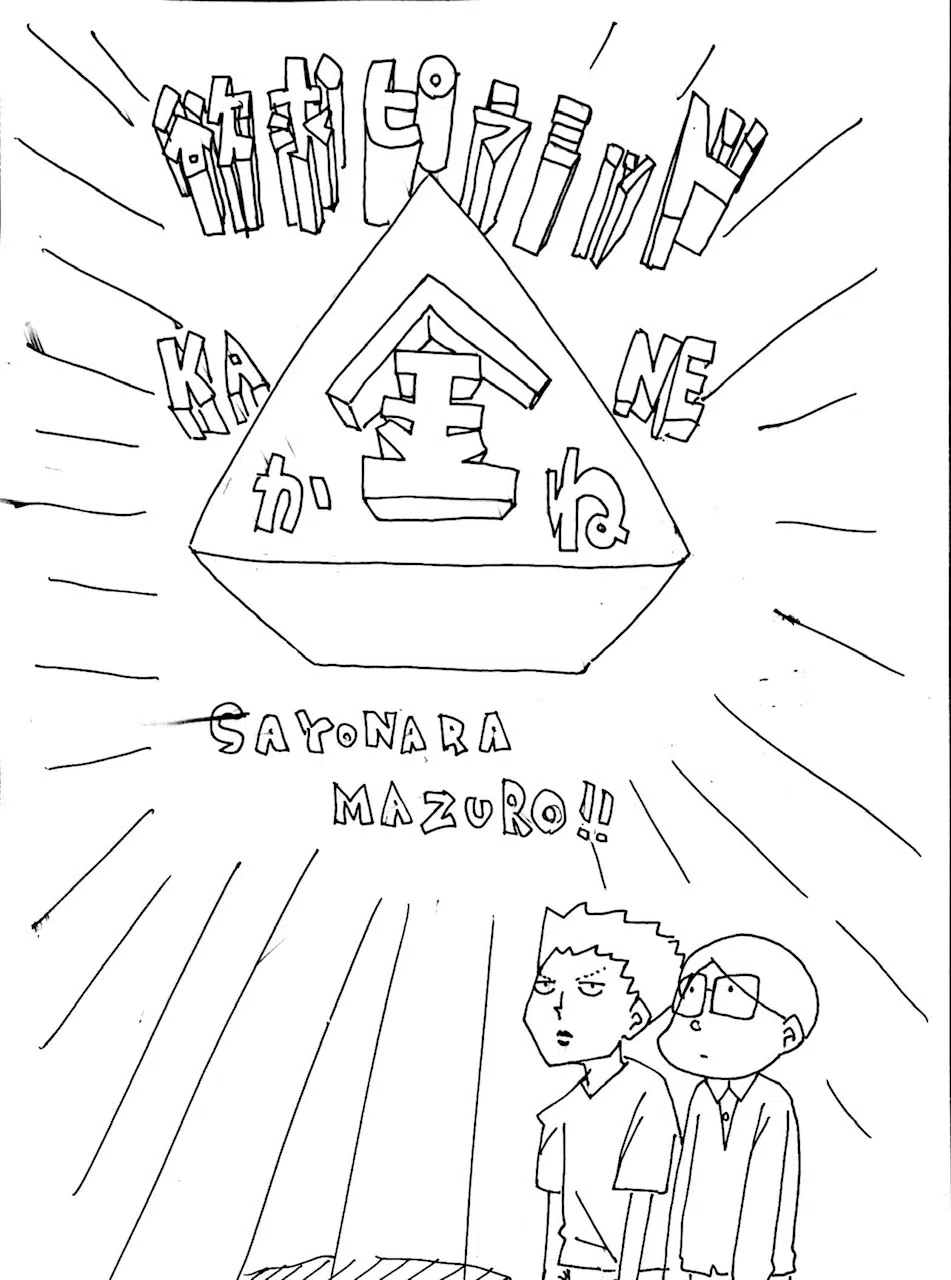 欲求ピラミッド
KA NE
金
か ね
SAYONARA
MAZURO!!